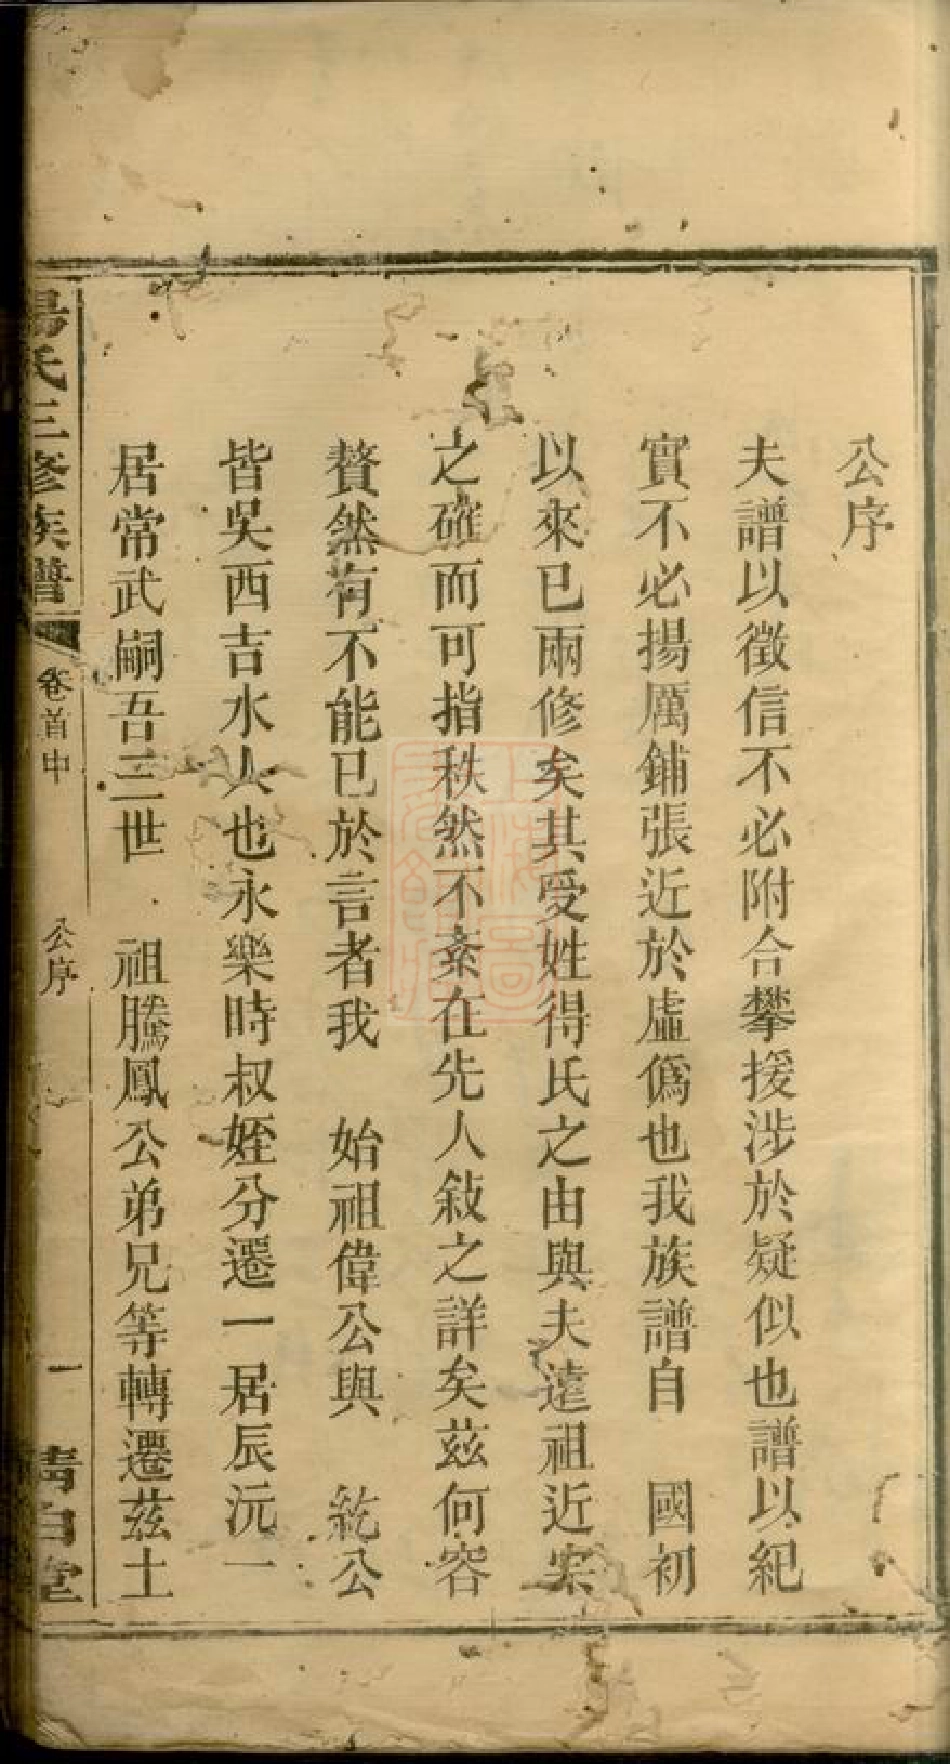 公序
夫譜以徵信不必附合攀援涉於疑似也譜以紀
實不必揚厲鋪張近於虛僞也我族譜自 國初
以來已兩修矣其受姓得氏之由與夫遠祖近宗
之確而可指秩然不紊在先人敍之詳矣茲何容
贅然有不能已於言者我 始祖偉公與 紇公
皆吳西吉水人也永樂時叔姪分遷一居辰沅一
居常武嗣吾三世 祖騰鳳公弟兄等轉遷茲土
楊氏三修族譜 卷首中 公序 一 清白堂